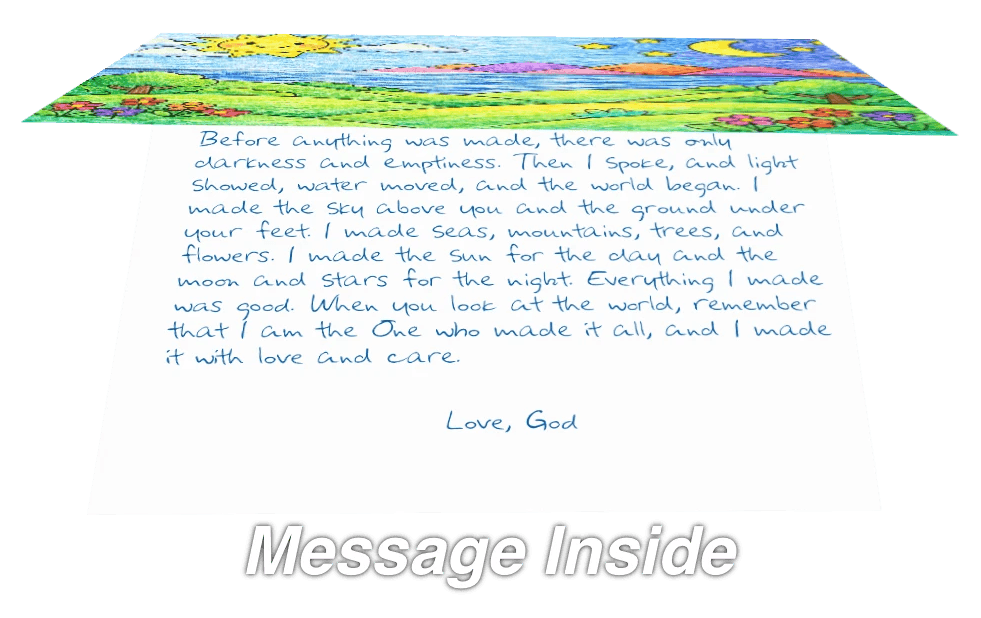 Before anything was made, there was only
darkness and emptiness. Then I spoke, and light
showed, water moved, and the world began. I
made the sky above you and the ground under
your feet. I made seas, mountains, trees, and
flowers. I made the sun for the day and the
moon and stars for the night. Everything I made
was good. When you look at the world, remember
that I am the One who made it all, and I made
it with love and care.
Love, God
Message Inside